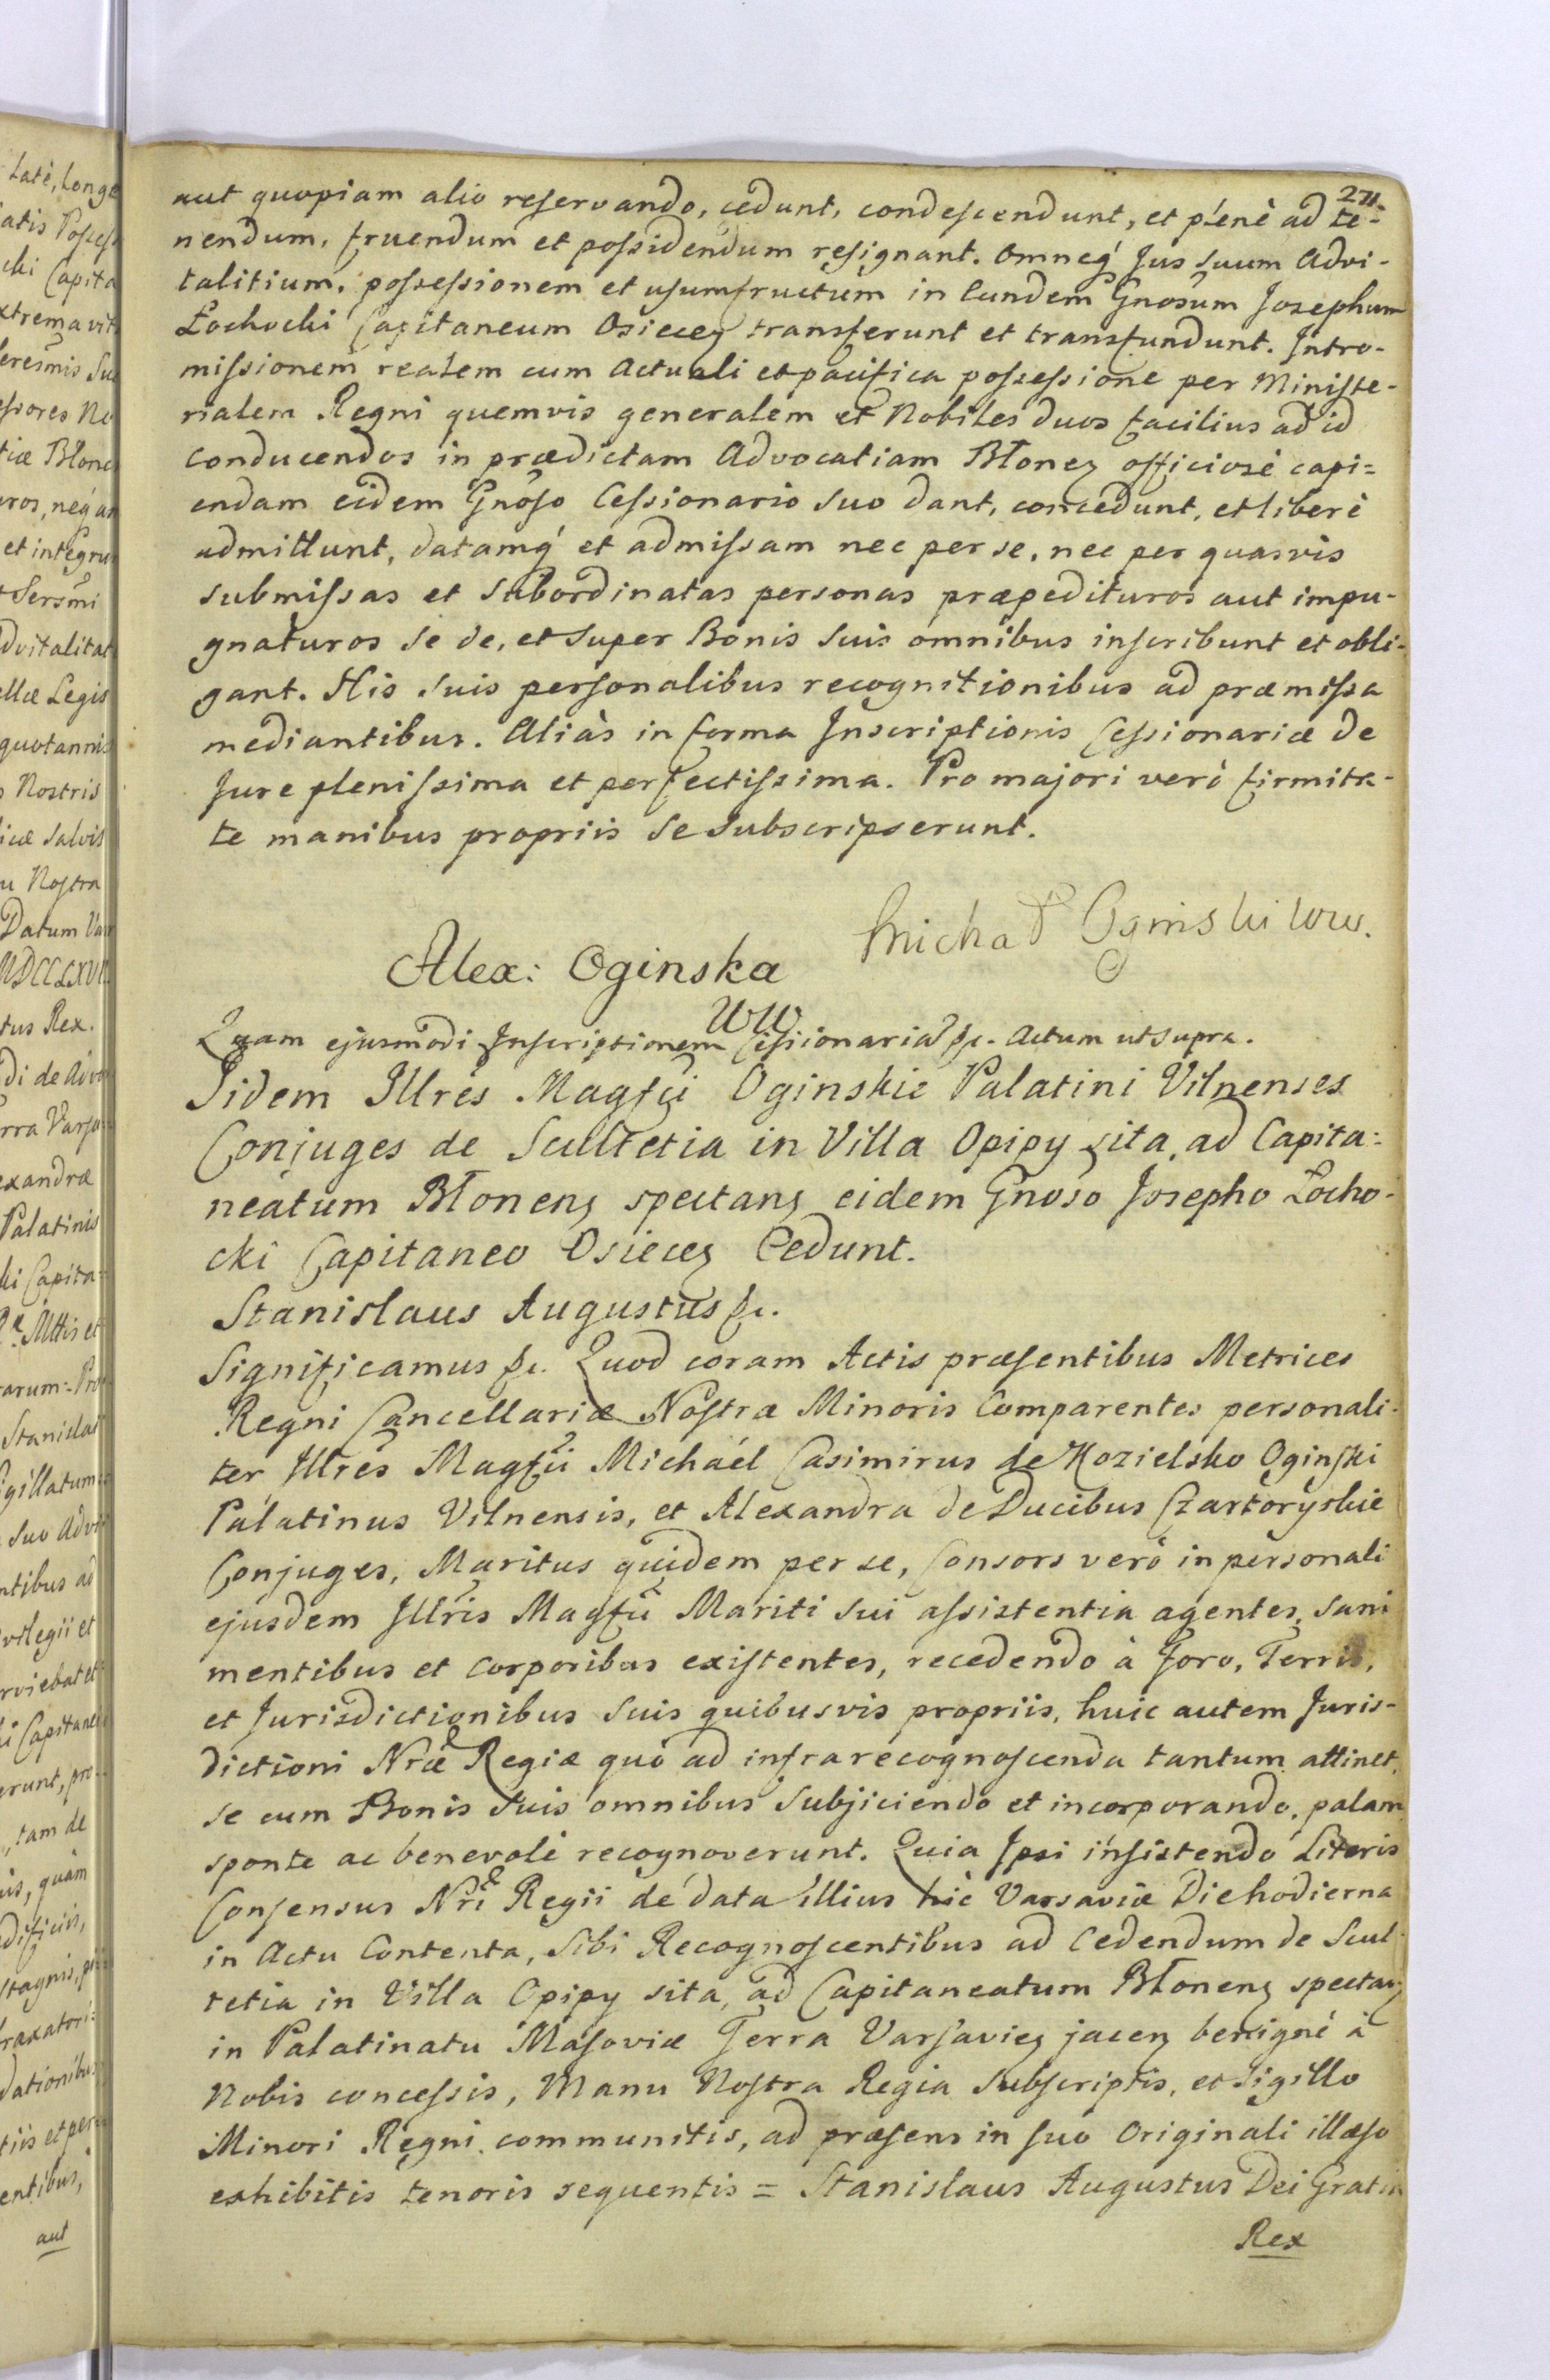 271.
aut quopiam alio reservando, cedunt, condescendunt, et plenè ad te-
nendum, fruendum et possidendum resignant. Omneq́ Jus suum Advi-
talitium, possessionem et usumfructum in Eundem Gnosum Josephum
Łochocki Capitaneum Osiecen transferunt et transfundunt. Intro-
missionem realem cum actuali et pacifica possessione per Ministe-
rialem Regni quemvis generalem et Nobiles duos facilius ad id
conducendos in prædictam Advocatiam Błonen officiosè capi=
endam eidem Gnoso Cessionario suo dant, concedunt, et liberè
admittunt, datamq́ et admissam nec per se, nec per quasvis
submissas et subordinatas personas præpedituros aut impu-
gnaturos se de, et super Bonis suis omnibus inscribunt et obli-
gant. His suis personalibus recognitionibus ad præmissa
mediantibus. Aliàs in forma Inscriptionis Cessionariæ de
Jure plenissima et perfectissima. Pro majori verò firmita-
te manibus propriis se subscripserunt.
Michał Ogiński ww.
Alex: Oginska
WW
Quam ejusmodi Inscriptionem Cessionariã &c. Actum ut supra.
Iidem Illres Magfci Oginskie Palatini Vilnenses
Conjuges de Scultetia in Villa Opipy sita, ad Capita=
neatum Błonen spectan eidem Gnoso Josepho Łocho-
cki Capitaneo Osiecen Cedunt.
Stanislaus Augustus &c.
Significamus &c. Quod coram Actis præsentibus Metrices
Regni Cancellariæ Nostræ Minoris Comparentes personali-
ter Illres Magfci Michaél Casimirus de Kozielsko Oginski
Palatinus Vilnensis, et Alexandra de Ducibus Czartoryskie
Conjuges, Maritus quidem per se, Consors verò in personali
ejusdem Illris Magfci Mariti sui assistentia agentes, sani
mentibus et corporibus existentes, recedendo à Foro, Terris,
et Jurisdictionibus suis quibusvis propriis, huic autem Juris-
dictioni Nræ Regiæ quò ad infra recognoscenda tantum attinet,
se cum Bonis suis omnibus subjiciendo et incorporando, palam
sponte ac benevolè recognoverunt. Quia Ipsi insistendo Literis
Consensus Nri Regii de data illius hic Varsaviæ Die hodierna
in Actu Contenta, sibi Recognoscentibus ad Cedendum de Scul-
tetia in Villa Opipy sita, ad Capitaneatum Błonen spectan
in Palatinatu Masoviæ Terra Varsavien jacen benignè à
Nobis concessis, Manu Nostra Regia subscriptis, et Sigillo
Minori Regni communitis, ad præsens in suo Originali illæso
exhibitis tenoris sequentis = Stanislaus Augustus Dei Gratia
Rex